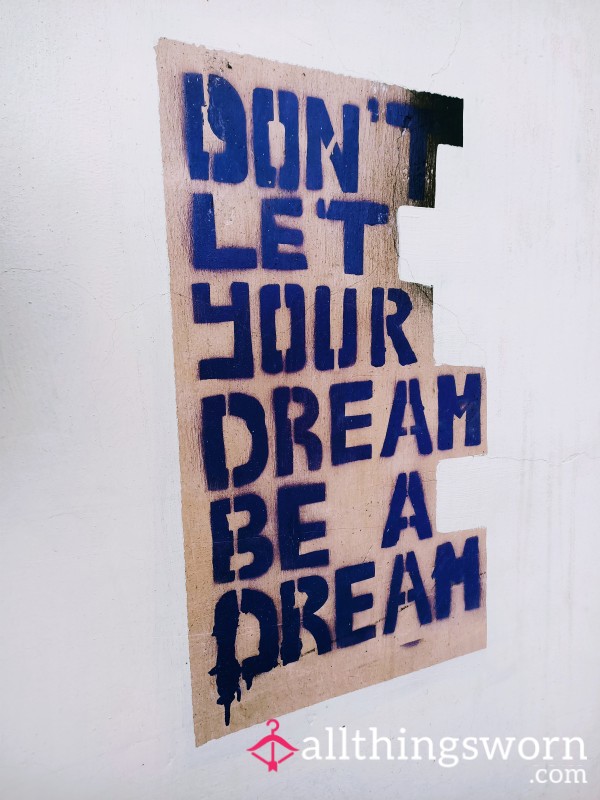 DON'T
LET
YOUR
DREAM
BE A
DREAM
allthingsworn
.com